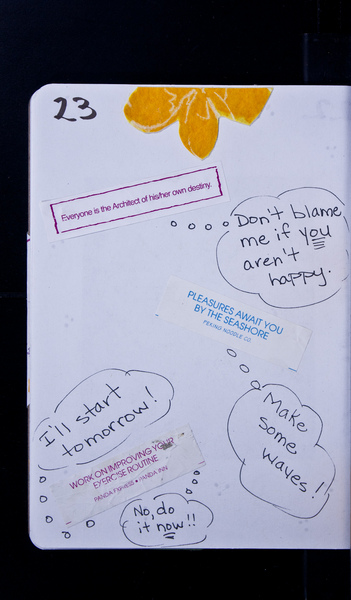 23
Everyone is the Architect of his/her own destiny.
Don't blame
me if you
aren't
happy.
PLEASURES AWAIT YOU
BY THE SEASHORE
PEKING NOODLE CO.
Make
some
waves!!
I'll start
tomorrow!
WORK ON IMPROVING YOUR
EXERCISE ROUTINE
PANDA EXPRESS • PANDA INN
No, do
it now!!